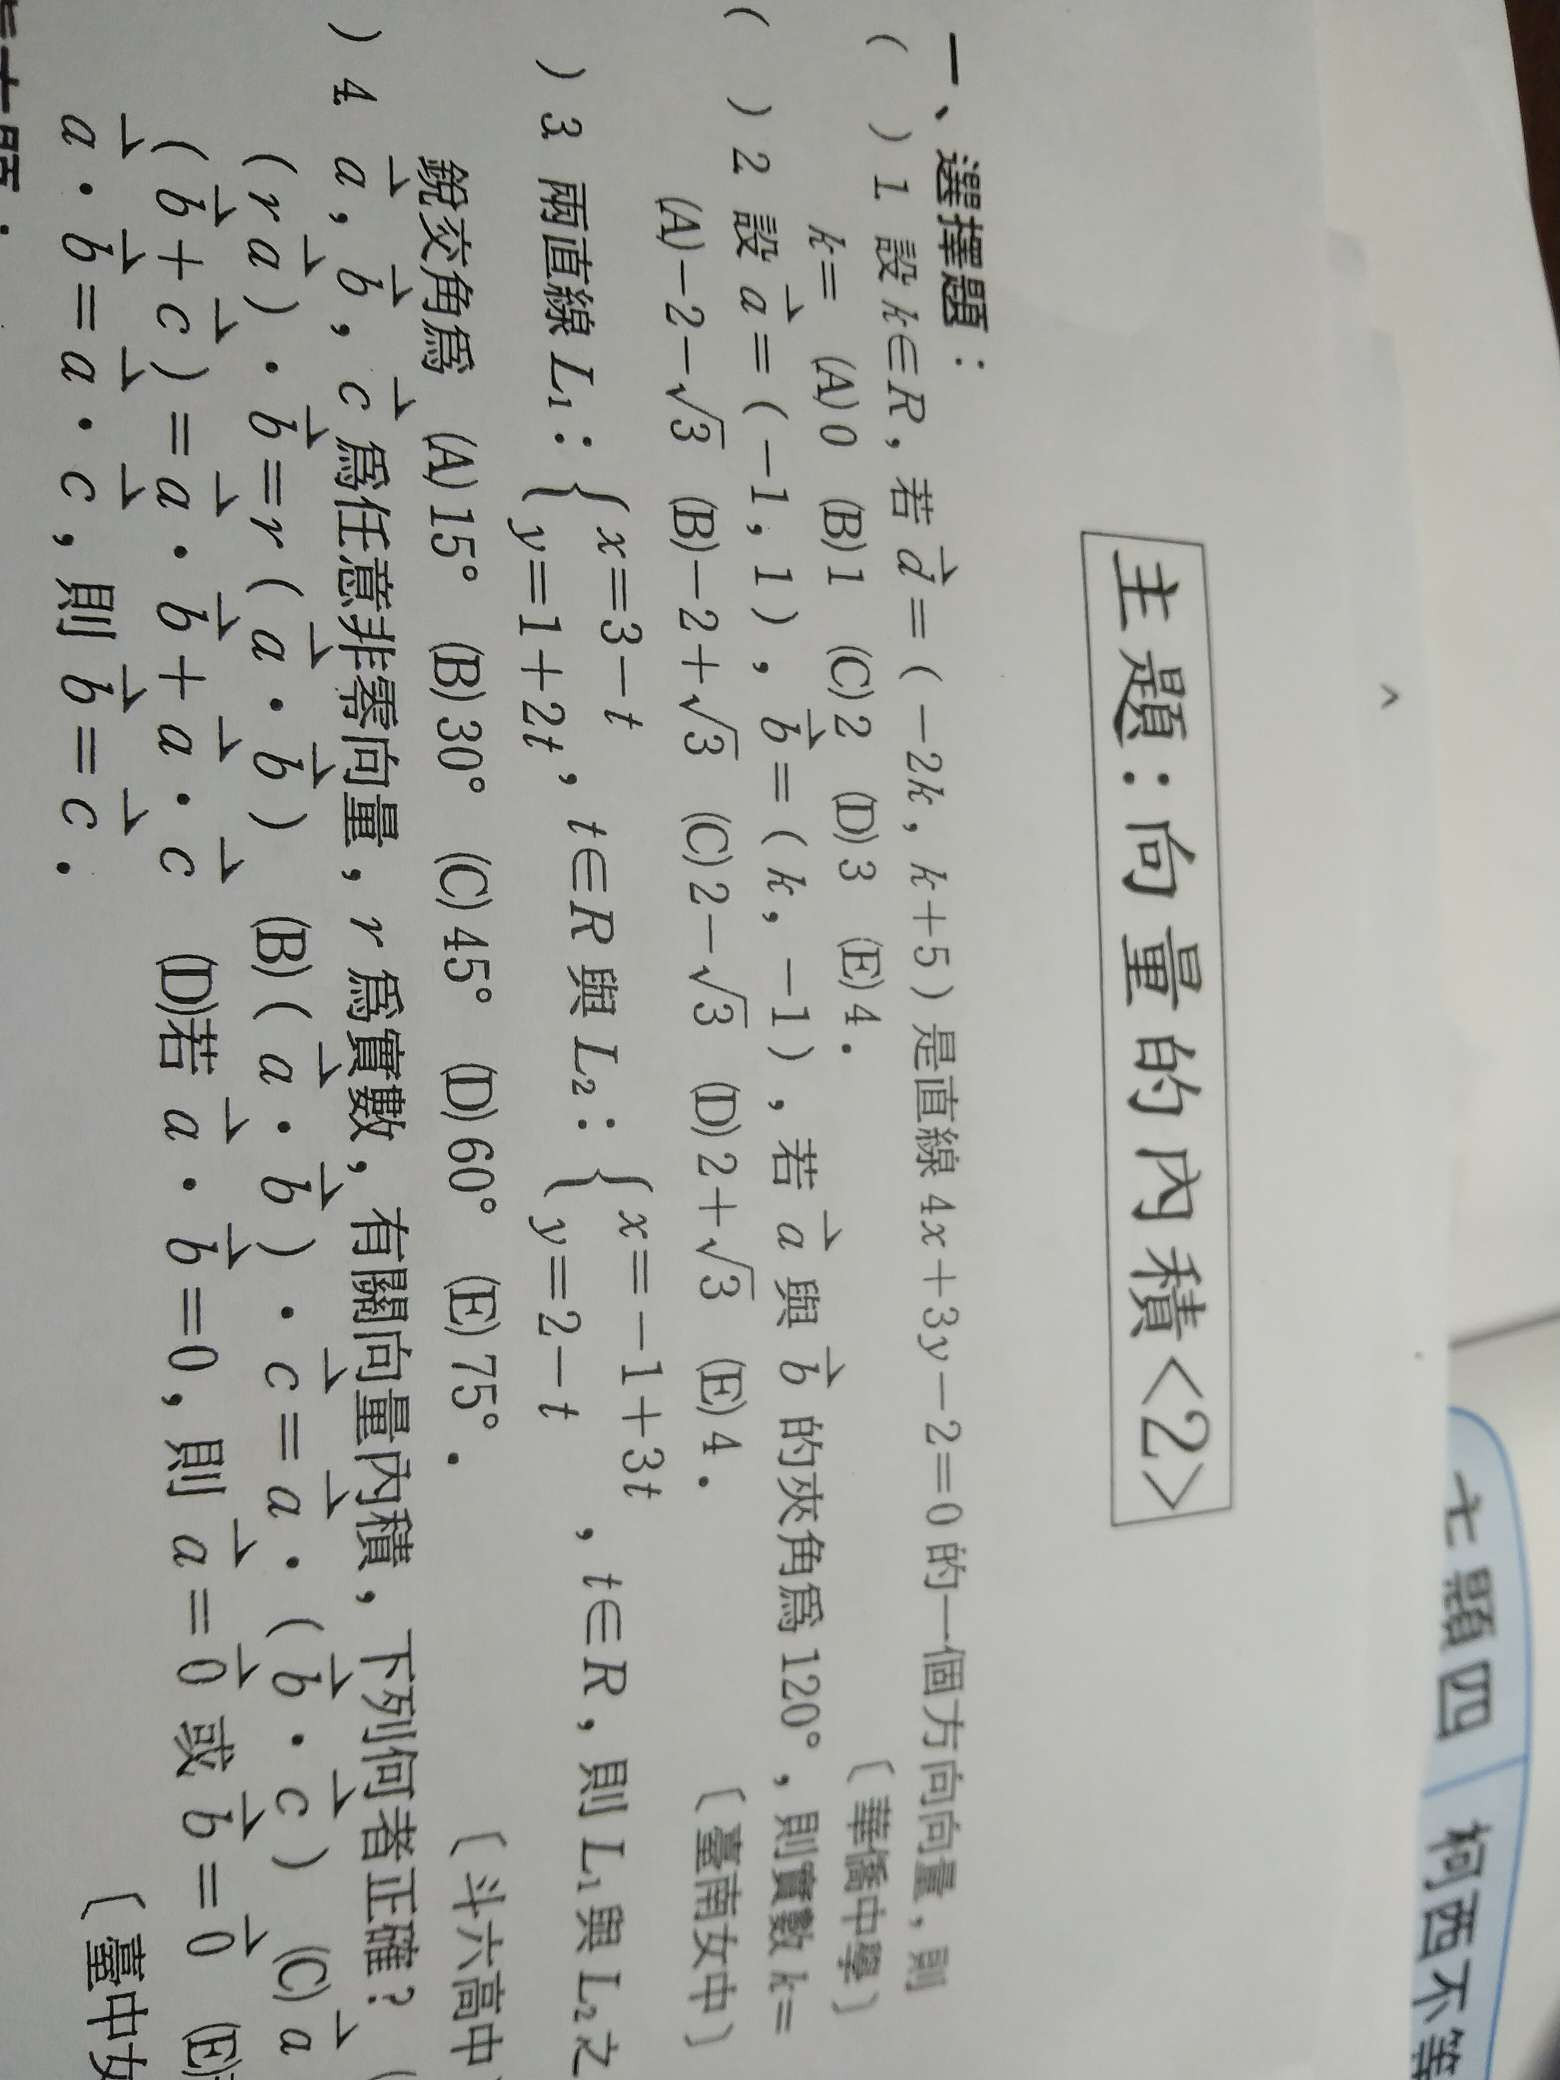 主題四 柯西不等
主題：向量的內積<2>
一、選擇題：
(　) 1. 設 k∈R，若 d⃗=(-2k, k+5) 是直線 4x+3y-2=0 的一個方向向量，則
k=　(A) 0　(B) 1　(C) 2　(D) 3　(E) 4．　〔華僑中學〕
(　) 2. 設 a⃗=(-1, 1)，b⃗=(k, -1)，若 a⃗ 與 b⃗ 的夾角為 120°，則實數 k=
(A) -2-√3　(B) -2+√3　(C) 2-√3　(D) 2+√3　(E) 4．　〔臺南女中〕
) 3. 兩直線 L₁：{x=3-t, y=1+2t，t∈R 與 L₂：{x=-1+3t, y=2-t，t∈R，則 L₁ 與 L₂ 之
銳交角為　(A) 15°　(B) 30°　(C) 45°　(D) 60°　(E) 75°．　〔斗六高中
) 4. a⃗, b⃗, c⃗ 為任意非零向量，r 為實數，有關向量內積，下列何者正確？ (
(r a⃗)·b⃗=r(a⃗·b⃗)　(B) (a⃗·b⃗)·c⃗=a⃗·(b⃗·c⃗)　(C) a⃗
(b⃗+c⃗)=a⃗·b⃗+a⃗·c⃗　(D)若 a⃗·b⃗=0，則 a⃗=0⃗ 或 b⃗=0⃗　(E)
a⃗·b⃗=a⃗·c⃗，則 b⃗=c⃗．　〔臺中女